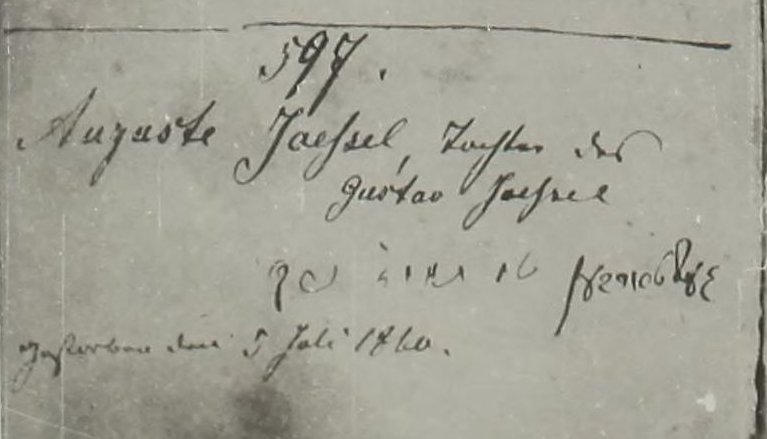 597.
Auguste Jaessel, Tochter des
Gustav Jaessel
gestorben den 5 Juli 1860.